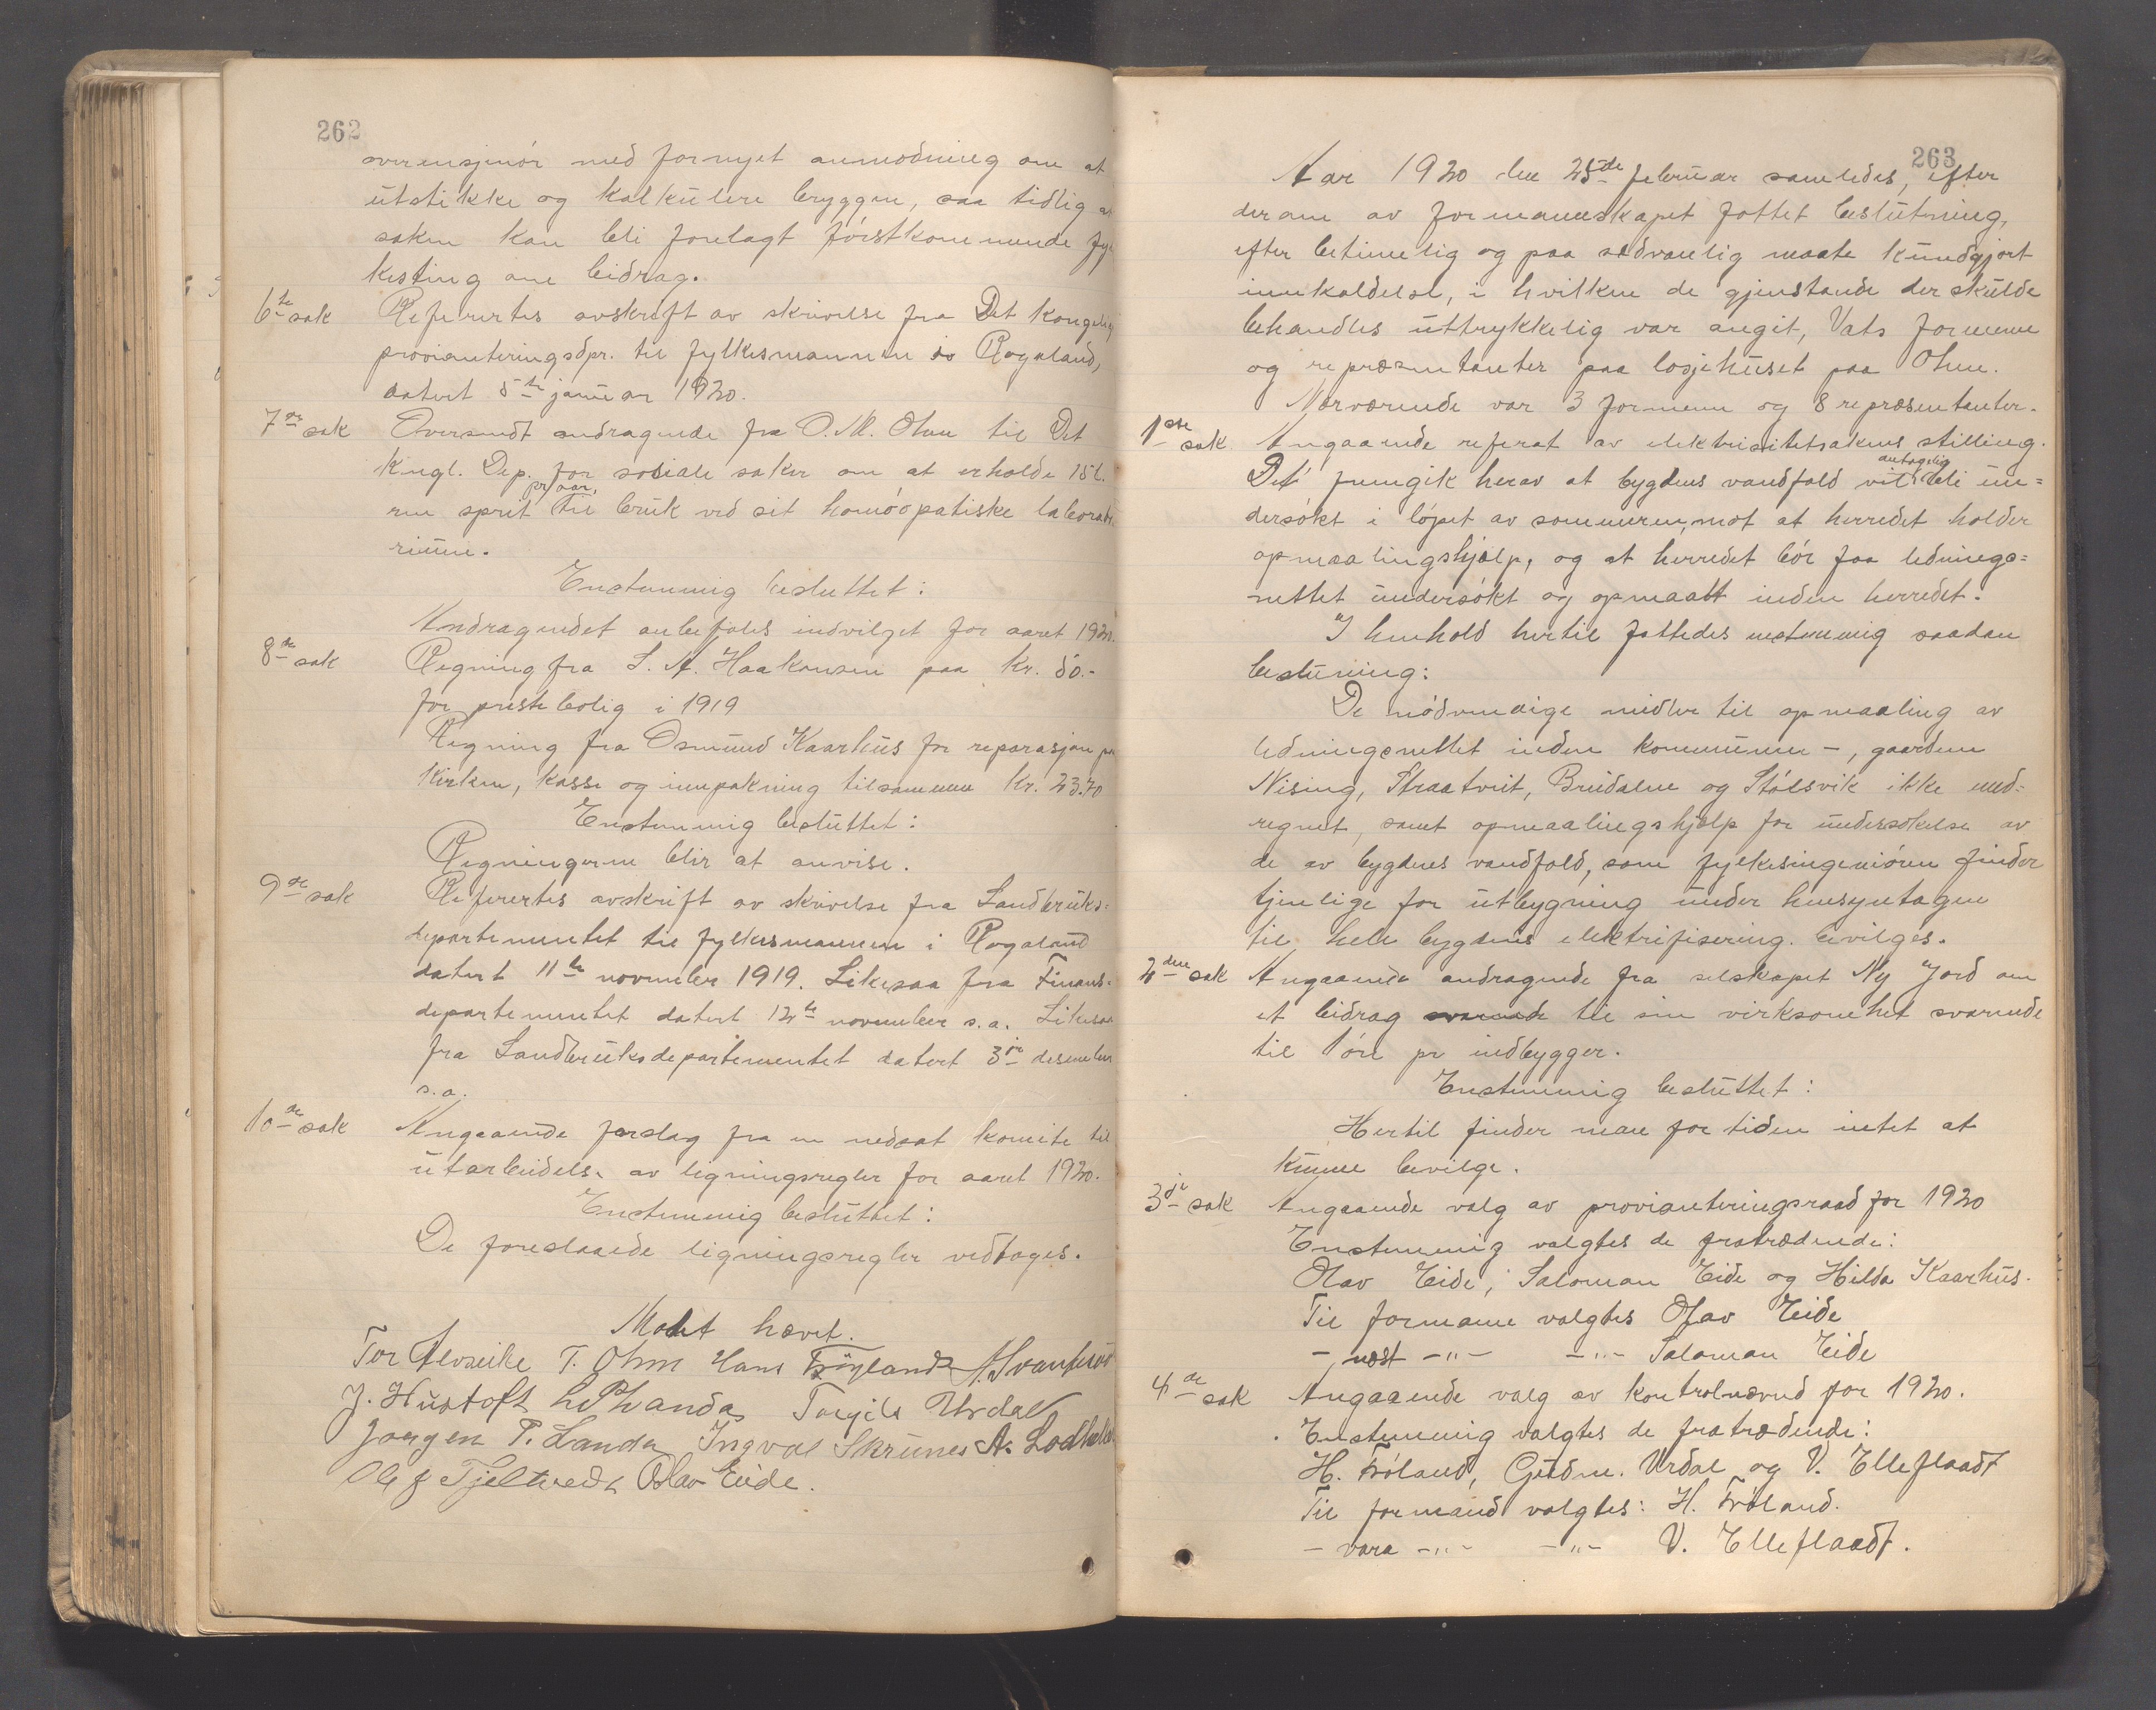 262
overensjenör med fornyet anmodning om at
utstikke og kalkulere bryggen, saa tidlig at
saken kan bli forelagt förstkommende fyl
kesting om bidrag.
6te sak Refertes avskrift av skrivelse fra Det kongelig
provianteringsdpr. til fylkesmannen i Rogaland,
datert 5te januar 1920.
7de sak Oversendt andragende fra O. M. Ohm til Det
Kingl. Dep. for sosiale saker om at erholde 15 l.
ren sprit pr aar, til bruk ved sit homöopatiske laborato
rium.
Enstemmig besluttet:
Andragendet anbefales indvilget for aaret 1920.
8de sak Regning fra S. A. Haakonsen paa Kr. 50.-
for prestebolig i 1919
Regning fra Osmund Kaarhus for reparasjon paa
Kirken, kasse og innpakning tilsammen Kr. 23.70
Enstemmig besluttet:
Regningerne blir at anvise.
9de sak Refertes avskrift av skrivelse fra Landbruks-
departementet til fylkesmannen i Rogaland
datert 11te november 1919. Likesaa fra Finans-
departementet datert 12te november s.a. Likesaa
fra Landbruksdepartementet datert 3je desember
s.a.
10de sak Angaaende forslag fra en nedsat komite til
utarbeidelse av ligningsregler for aaret 1920.
Enstemmig besluttet:
De foreslaaede ligningsregler vedtages.
Möket hævet.
Tor Alvseike T. Ohm Hans Fröyland A. Svanhild
J. Hustoft L. P. Landa Torgils Urdal
Jørgen T. Landa Ingval Skrunes A. Lodhelle
Ole J Fjeltvedt Olav Eide.
263
Aar 1920 den 25de februar samledes, efter
derom av formannskapet fattet beslutning,
efter betimelig og paa sedvanlig maate kundgjort
innkaldelse, i hvilken de gjenstande der skulde
behandles uttrykkelig var angit, Vats formenn
og repræsentanter paa losjehuset paa Ohm.
Nærværende var 3 formenn og 8 repræsentanter.
1ste sak Angaaende referat av elektrisitetsakens stilling.
Det fremgik herav at bygdens vandfald vil antagelig bli un=
dersökt i löpet av sommeren, mot at herredet holder
opmaalingshjælp, og at herredet bör faa lednings=
nettet undersökt og opmaalt inden herredet.
I henhold hertil fattedes enstemmig saadan
beslutning:
De nödvendige midler til opmaaling av
ledningsnettet inden kommunen -, gaardene
Nising, Straatveit, Breidalen og Stölsvik ikke med-
regnet, samt opmaalingshjælp for undersökelse av
de av bygdens vandfald, som fylkesingeniören finder
tjenlige for utbygning under hensyntagen
til hele bygdens elektrifisering. bevilges.
2den sak Angaaende andragende fra selskapet Ny Jord om
et bidrag svarende til sin virksomhet svarende
til 1 öre pr indbygger.
Enstemmig besluttet:
Hertil finder man for tiden intet at
kunne bevilge.
3dje sak Angaaende valg av provianteringsraad for 1920
Enstemmig valgtes de fratrædende:
Olav Eide, Saloman Eide og Hilda Kaarhus.
Til formann valgtes Olav Eide
- næst -"- -"- Saloman Eide
4de sak Angaaende valg av kontrolnævnd for 1920.
Enstemmig valgtes de fratrædende:
H. Fröland, Gudm. Urdal og V. Elleflaadt
Til formand valgtes: H. Fröland.
- vara -"- -"- V. Elleflaadt.